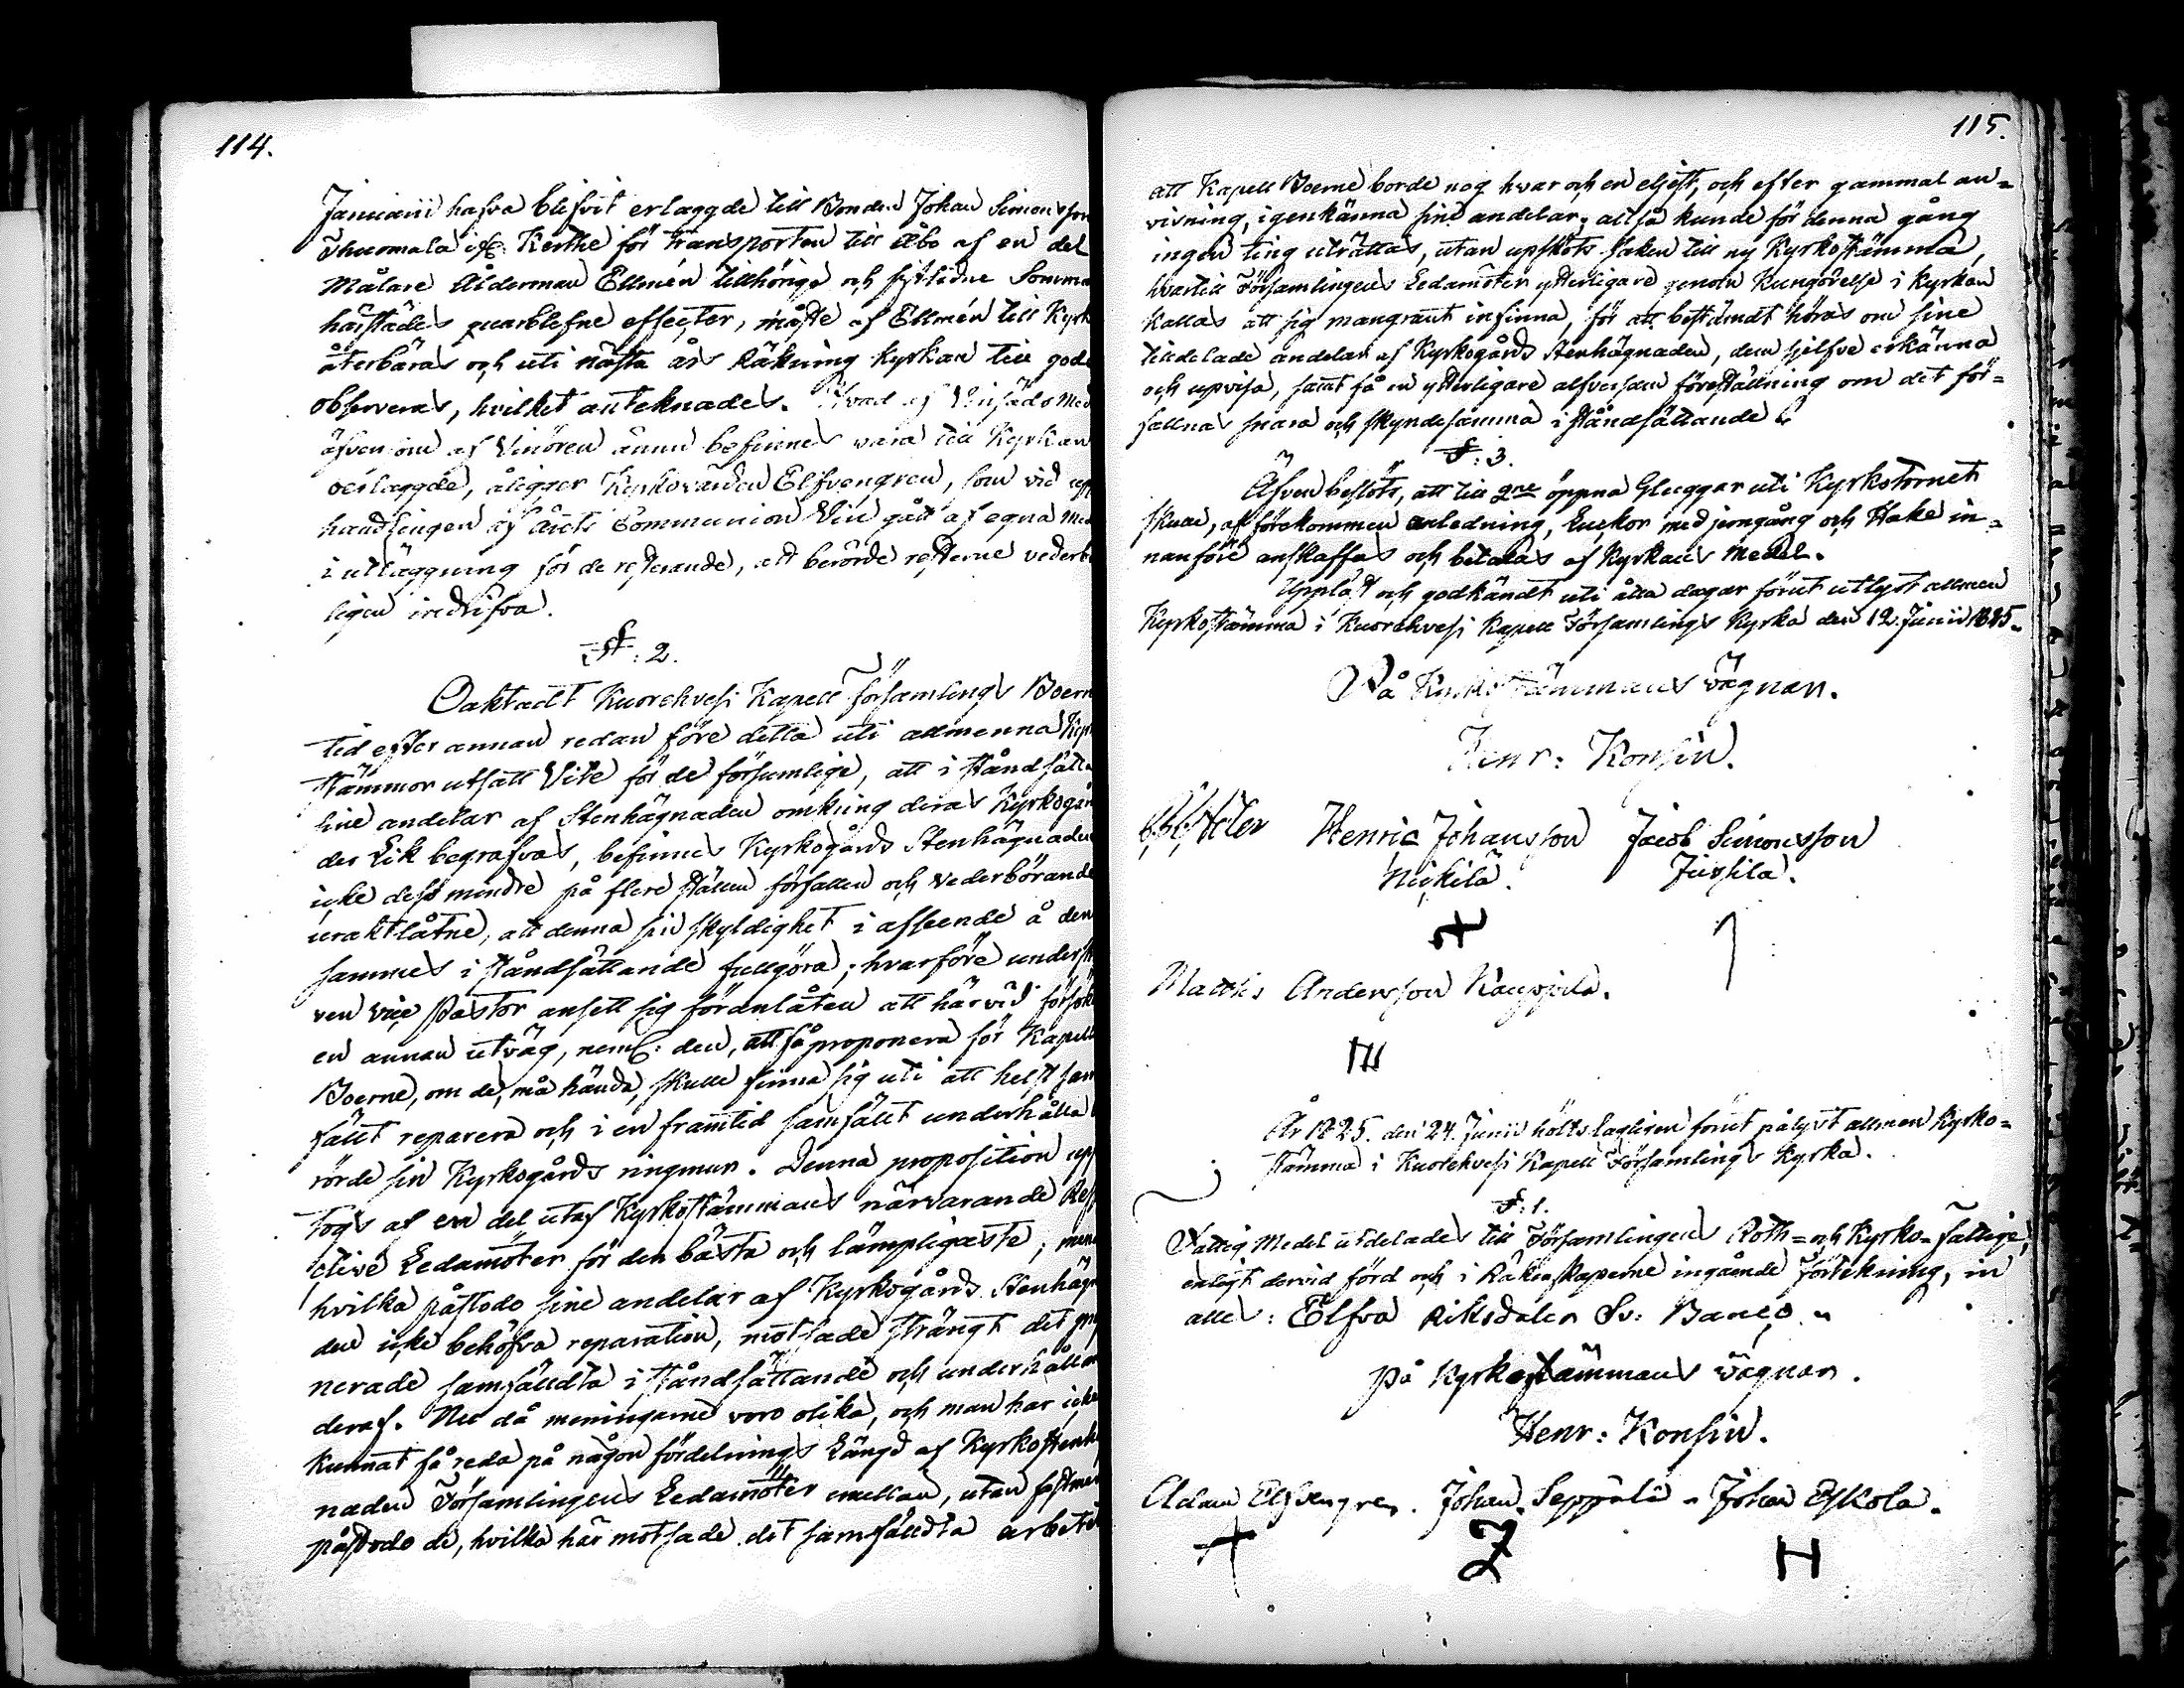 114.
Januarii hafva blifvit erlaggde till Bonden Johan Simonsson
Thuomala ifr: Kerthe för transporten till Åbo af en del
Målare Ålderman Ellmén tillhörige och sistledne Somma
härstädes quarblefne effecter, måste af Ellmén till Kyrk
återbäras och uti nästa års Räkning kyrkan till godo
observeras, hvilket anteknades. Hvad af Vinsäds Med
äfvensom af Vinören ännu befinnes vara till Kyrkan
oerlaggde, åligger Kyrkovärden Elfvengren, som vid upp
handlingen af årets Communion Vin gått af egna Med
i utläggning för de resterande, att berörde resterne vederbö
ligen indrifva.
§: 2.
Oaktadt Kuorehvesi Kapell Församlings Boern
tid efter annan redan före detta uti allmenna Kyrk
stämmor utsatt Vite för de försumlige, att i stånd sätta
sine andelar af Stenhägnaden omkring deras Kyrkogår
der Lik begrafvas, befinnes Kyrkogårds Stenhägnaden
icke dess mindre på flere ställen förfallen och vederbörande
uraktlåtne, att denna sin skyldighet i afseende å den
sammes i ståndsättande fullgöra; hvarföre underskr
ven vice Pastor ansett sig föranlåten att härvid försök
en annan utväg, neml: den, att få proponera för Kapell
Boerne, om de, må hända, skulle finna sig uti att helst sam
fält reparera och i en framtid samfält underhålla
rörde sin Kyrkogårds ringmur. Denna proposition upp
togs af en del utaf Kyrkostämmans närvarande Resp
ctive Ledamöter för den bästa och lämpligaste; men
hvilka påstodo sine andelar af Kyrkogårds Stenhägn
den icke behöfva reparation, motsade strängt det pro
nerade samfälldta i ståndsättande och underhållan
deraf. Nu då meningarne voro olika, och man har icke
kunnat få reda på någon fördelnings Längd af Kyrkostenhä
naden Församlingens Ledamöter emellan, utan fastmer
påstodo de, hvilka här motsade det samfälldta arbetet
115.
att Kapell Boerne borde nog hvar och en eljest, och efter gammal an=
visning, igenkänna sine andelar; altså kunde för denna gång
ingen ting uträttas, utan upsköts saken till ny Kyrkostämma,
hvartill Församlingens Ledamöter ytterligare genom Kungörelse i kyrkan
kallas att sig mangrant infinna, för att bestämdt höras om sine
tilldelade andelar af Kyrkogårds Stenhägnaden, dem sjelfve erkänna
och upvisa, samt få en ytterligare alfversam föreställning om det för=
fallnas snara och skyndesamma i ståndsättande
§: 3.
Äfven beslöts, att till 2ne öppna Gluggar uti Kyrkotornet
skulle, af förekommen anledning, Luckor med jerngång och Hake in=
nanföre anskaffas och betalas af Kyrkans Medel.
Upplåst och godkändt uti åtta dagar förut utlyst allmen
Kyrkostämma i Kuorehvesi Kapell Församlings Kyrka den 12. Junii 1825.
På Kyrkostämmans vägnar.
Henr: Konsin.
Henric Johansson Jacob Simonsson
Nickilä. Jussila.
Matths Andersson Kauppila.
År 1825. den 24. Junii hölts lagligen förut pålyst allmen Kyrko=
stämma i Kuorehvesi Kapell Församlings Kyrka.
§: 1.
Fattig Medel utdelades till Församlingens Roth= och Kyrko=fattige,
enligt dervid förd och i Räkenskaperne ingående förtekning, in
alles: Elfva Riksdaler Sv: Banco.
på Kyrkostämmans vägnar.
Henr: Konsin.
Adam Elfvengren. Johan Seppälä. Johan Eskola.